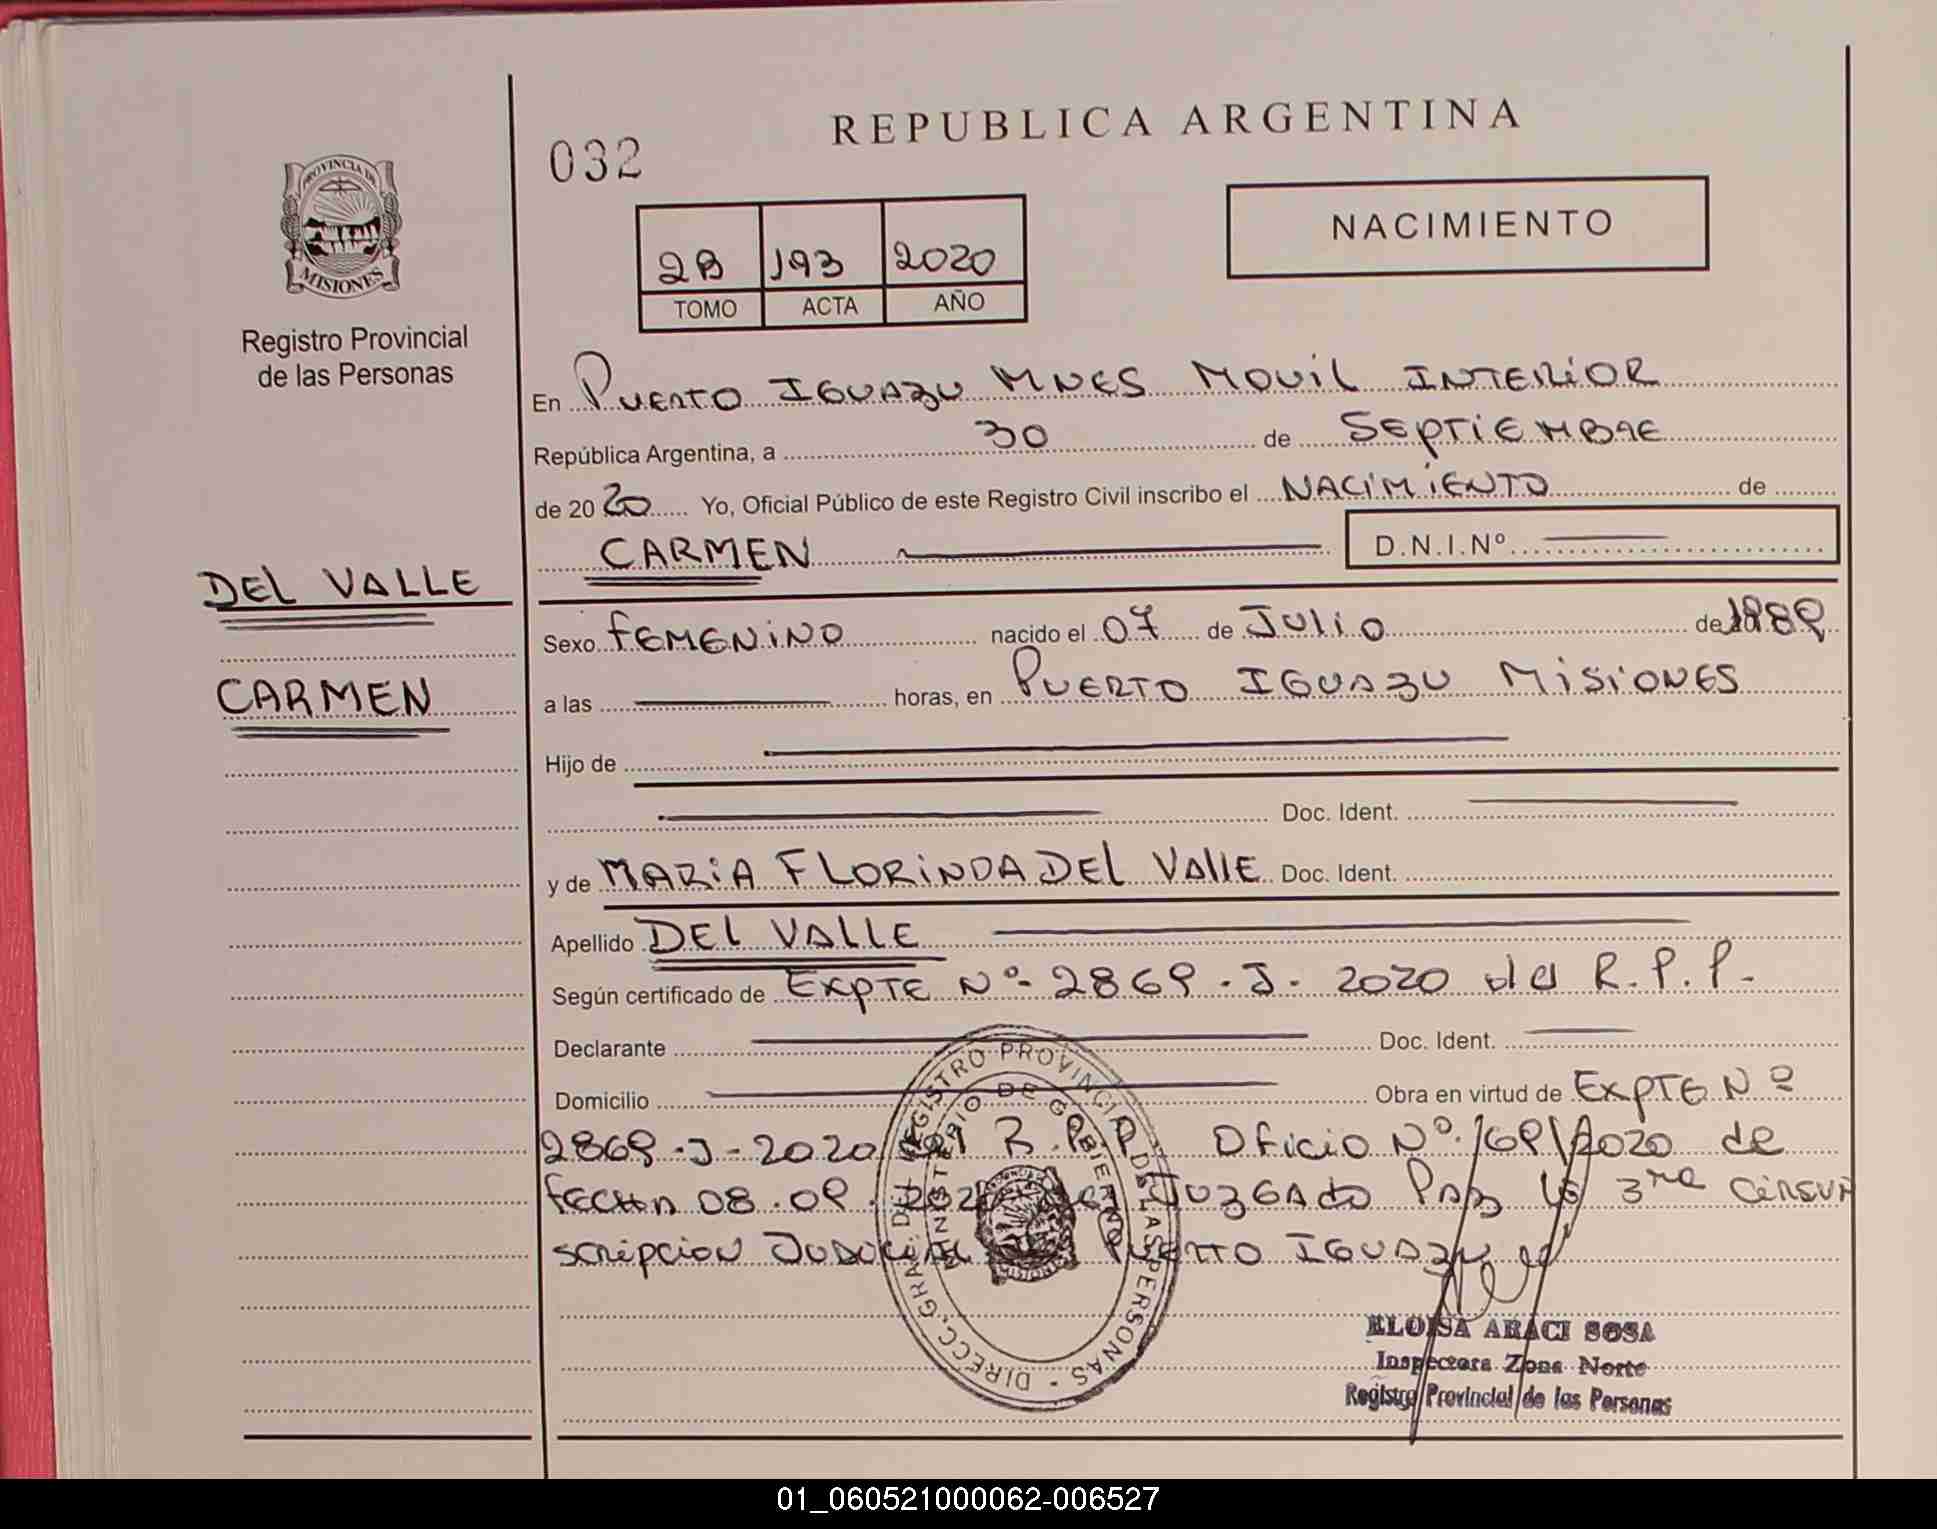 REPUBLICA ARGENTINA
032
PROVINCIA DE
MISIONES
Registro Provincial
de las Personas
NACIMIENTO
2B 193 2020
TOMO ACTA AÑO
En PUERTO IGUAZU MNES MOVIL INTERIOR
República Argentina, a 30 de SEPTIEMBRE
de 2020 Yo, Oficial Público de este Registro Civil inscribo el NACIMIENTO de
CARMEN D.N.I.Nº
DEL VALLE
CARMEN
Sexo FEMENINO nacido el 07 de JULIO de
a las horas, en PUERTO IGUAZU MISIONES
Hijo de
Doc. Ident.
y de MARIA FLORINDA DEL VALLE Doc. Ident.
Apellido DEL VALLE
Según certificado de EXPTE Nº 2869.J. 2020 del R.P.P.
Declarante Doc. Ident.
Domicilio Obra en virtud de EXPTE Nº
2869.J-2020 del R.P.P. OFICIO Nº 169/2020 de
FECHA 08.09. JUZGADO PAZ 3ra CIRCUN
SCRIPCION JUDICIAL PUERTO IGUAZU
DIRECC. GRAL. DEL REGISTRO PROVINCIAL DE LAS PERSONAS
MINISTERIO DE GOBIERNO
ELOISA ARACI SOSA
Inspectora Zona Norte
Registro Provincial de las Personas
01_060521000062-006527